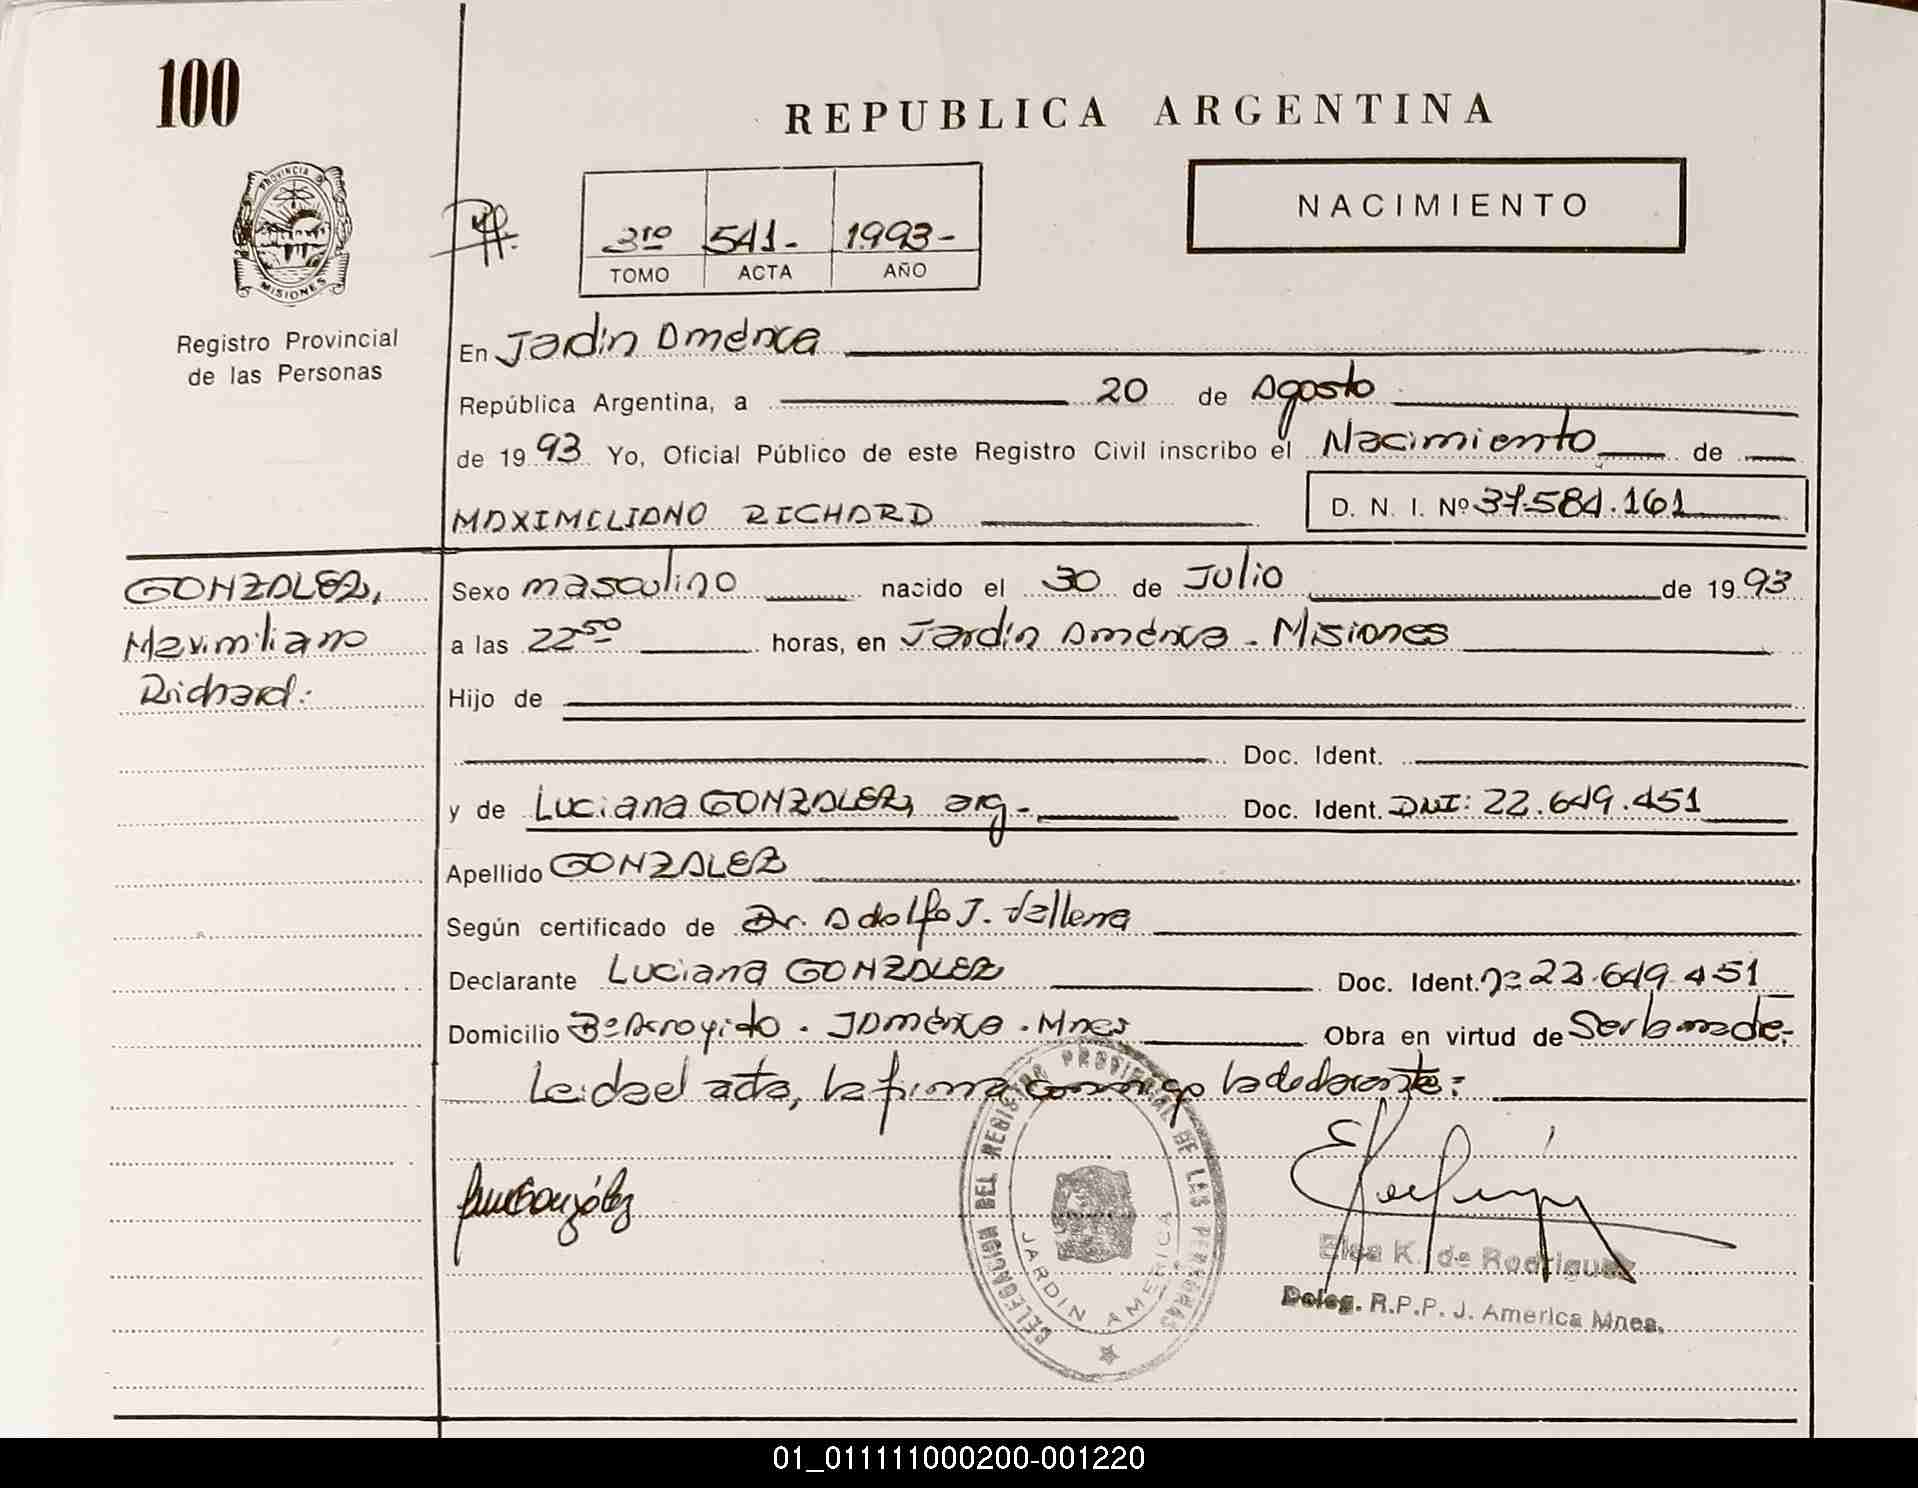 100
REPUBLICA ARGENTINA
PROVINCIA DE
MISIONES
Registro Provincial
de las Personas
3ro 541- 1993-
TOMO ACTA AÑO
NACIMIENTO
En Jardín América
República Argentina, a 20 de Agosto
de 1993 Yo, Oficial Público de este Registro Civil inscribo el Nacimiento de
MAXIMILIANO RICHARD D. N. I. Nº 37.584.161
GONZALEZ,
Maximiliano
Richard.
Sexo masculino nacido el 30 de Julio de 1993
a las 22 50 horas, en Jardín América - Misiones
Hijo de
Doc. Ident.
y de Luciana GONZALEZ, arg.- Doc. Ident. DNI: 22.649.451
Apellido GONZALEZ
Según certificado de Dr. Adolfo J.
Declarante Luciana GONZALEZ Doc. Ident. Nº 22.649.451
Domicilio Bº Arroyito - J América - Mnes Obra en virtud de Ser la madre.-
Leída el acta, la firma conmigo la declarante:
DELEGACION DEL REGISTRO PROVINCIAL DE LAS PERSONAS
JARDIN AMERICA
González
Elsa K. de Rodriguez
Deleg. R.P.P. J. America Mnes.
01_011111000200-001220